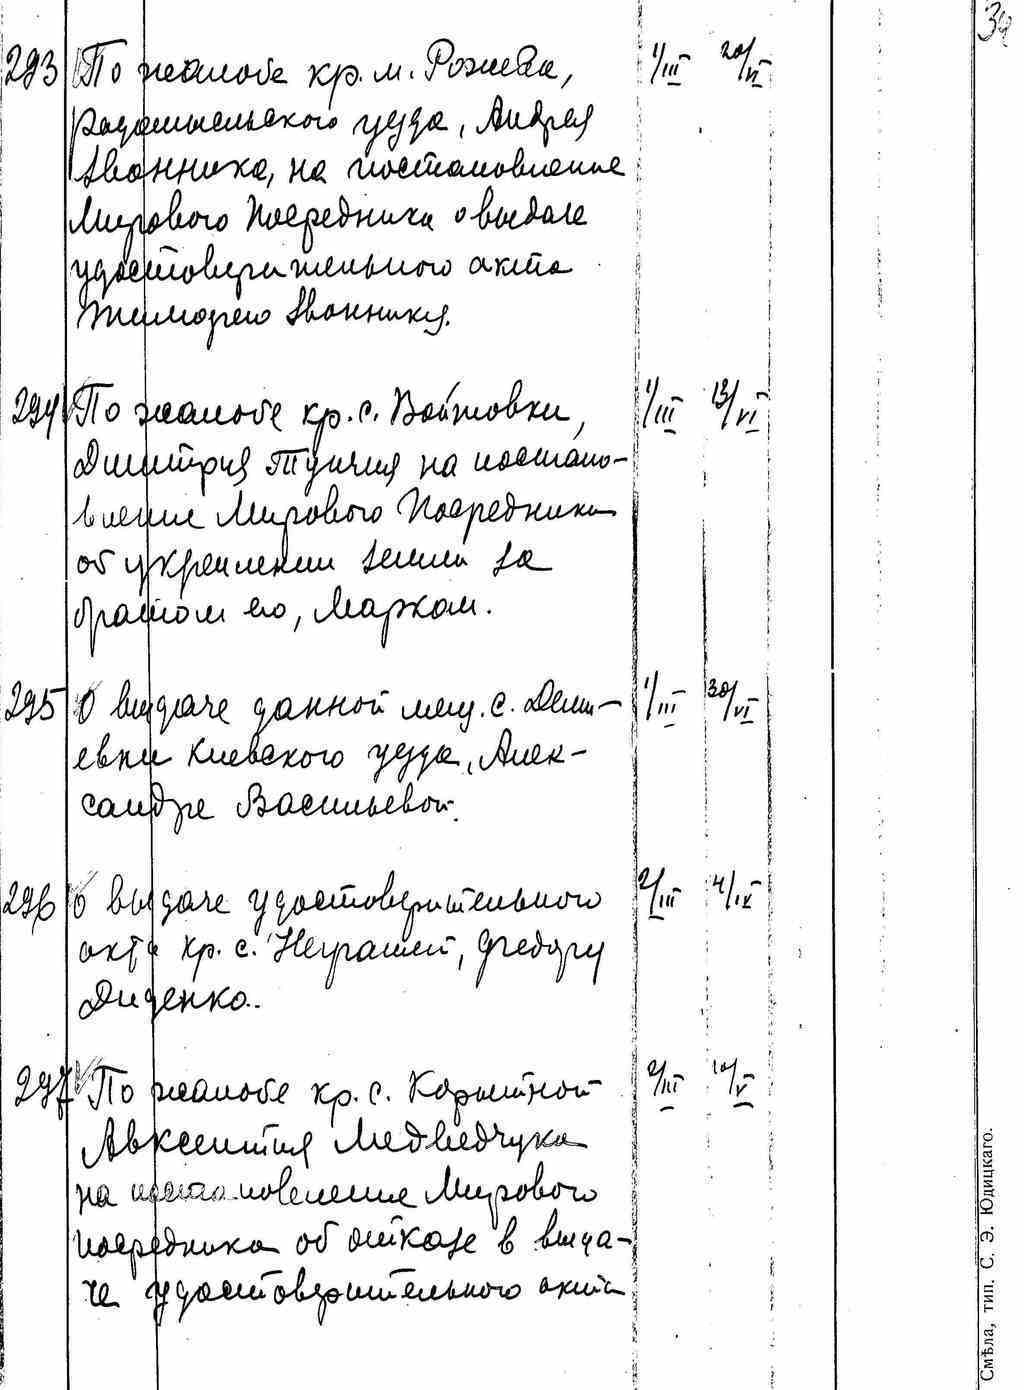 34
293 По жалобе кр. м. Рожева, 1/III 20/VI
Радомысльского уезда, Андрея
Званника, на постановление
Мирового Посредника о выдаче
удостоверительного акта
Тимофею Званнику.
294 По жалобе кр. с. Войтовки, 1/III 13/VI
Дмитрия на постано-
вление Мирового Посредника
об укреплении земли за
братом его, Марком.
295 О выдаче данной мещ. с. Деми- 1/III 30/VI
евки Киевского уезда, Алек-
сандре Васильевой.
296 О выдаче удостоверительного 2/III 4/IX
акта кр. с. Неграшей, Федору
Диденко.
297 По жалобе кр. с. Корытной 2/III 10/V
Авксентия Медведчука
на постановление Мирового
посредника об отказе в выда-
че удостоверительного акта
Смѣла, тип. С. Э. Юдицкаго.